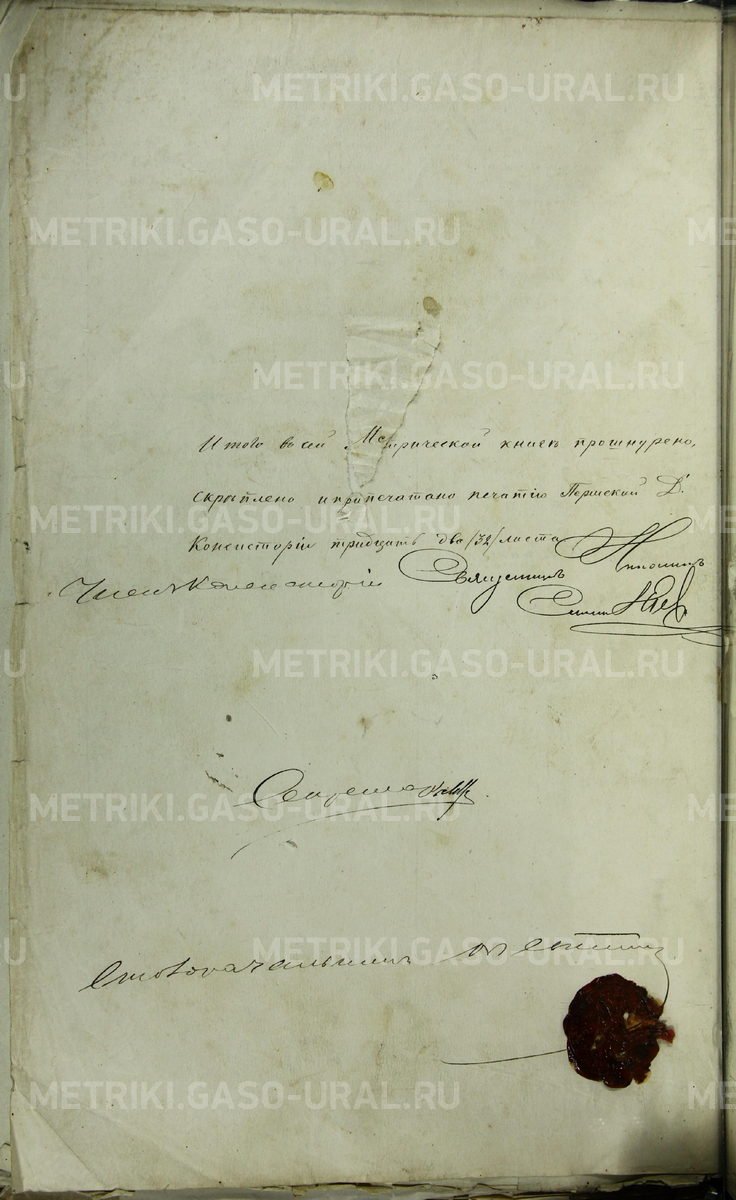 METRIKI.GASO-URAL.RU
METRIKI.GASO-URAL.RU
METRIKI.GASO-URAL.RU
Итого въ сей Метрической книгѣ прошнурено,
скрѣплено и пропечатано печатію Пермской Д.
Консисторіи тридцать два /32/ листа
METRIKI.GASO-URAL.RU
Членъ Консисторіи Священникъ
METRIKI.GASO-URAL.RU
Секретарь
METRIKI.GASO-URAL.RU
Столоначальникъ
METRIKI.GASO-URAL.RU
METRIKI.GASO-URAL.RU